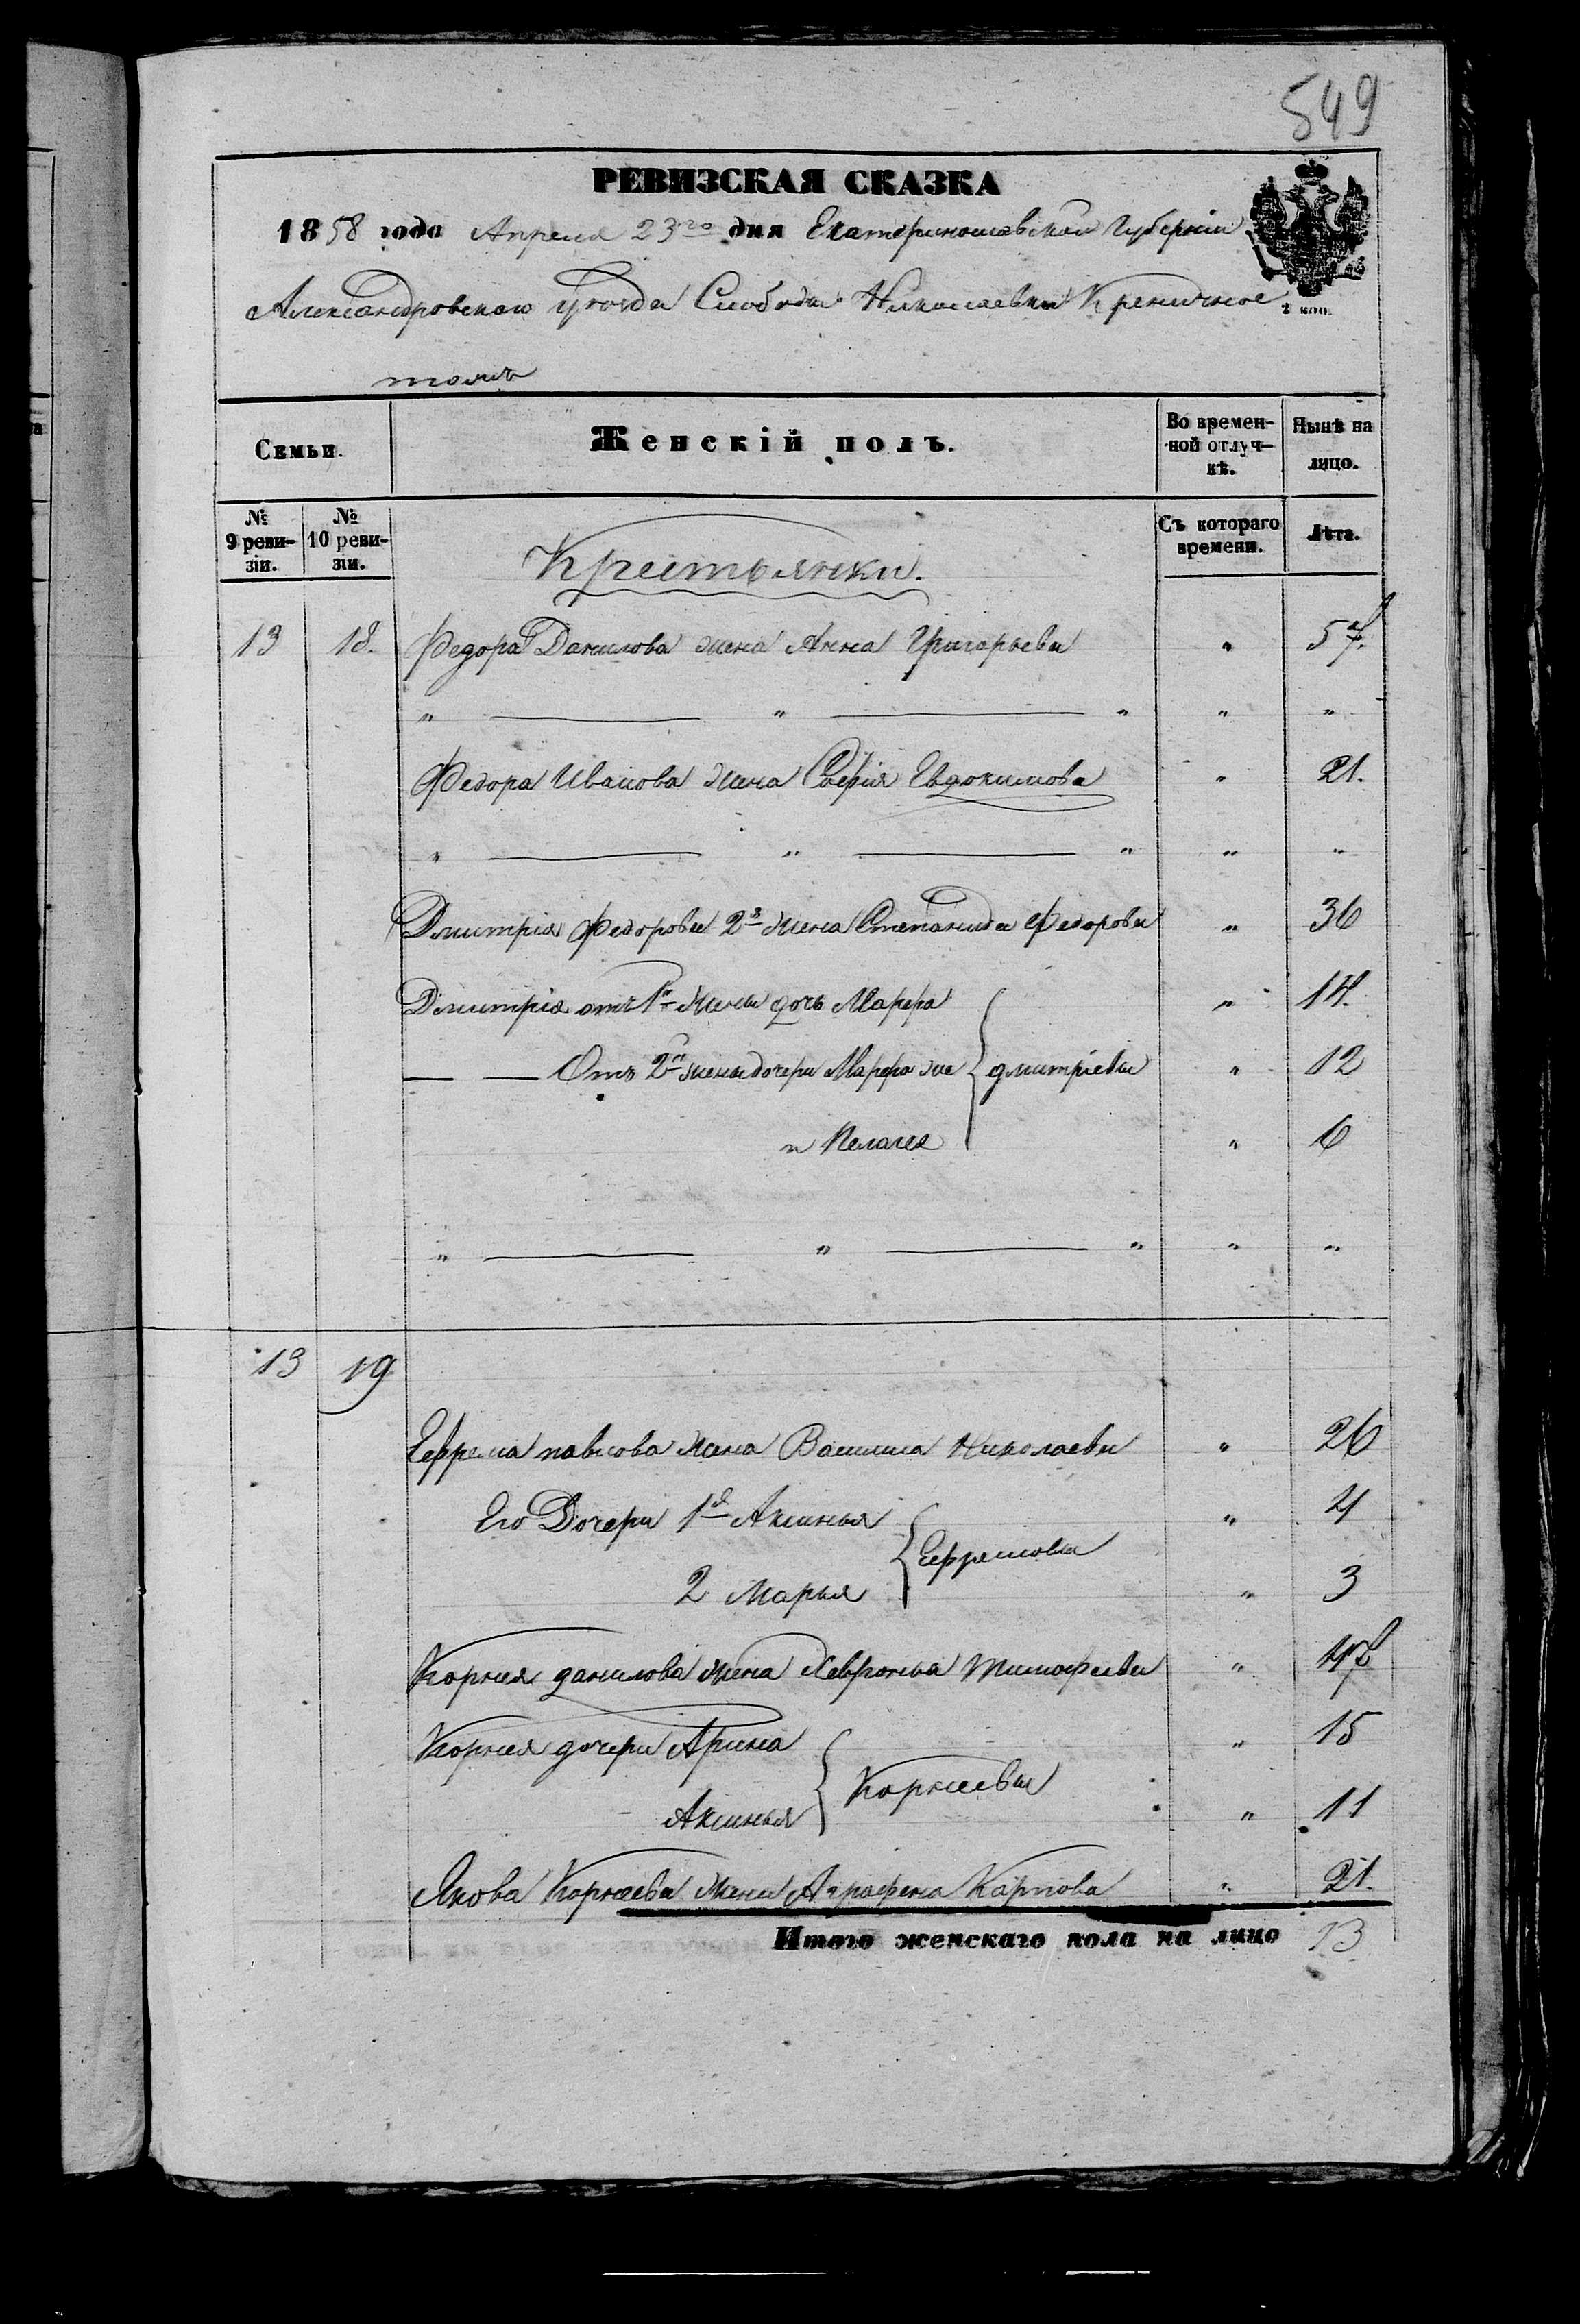 549
РЕВИЗСКАЯ СКАЗКА
1858 года Апреля 23го дня Екатеринославской Губерніи
Александровскаго уезда Слободы Николаевки Креничное
тожъ
2 коп.
Семьи.
Женскій полъ.
Во времен-
ной отлуч-
кѣ.
Нынѣ на
лицо.
№
9 реви-
зіи.
№
10 реви-
зіи.
Съ котораго
времени.
Лѣта.
Крестьянки.
13 18. Федора Данилова жена Анна Григорьева " 57.
" " " " "
Федора Иванова жена Софія Евдокимова " 21.
" " " " "
Дмитрія Федорова 2я жена Степанида Федорова " 36
Дмитрія отъ 1й жены дочь Марфа " 14.
Отъ 2й жены дочери Марфа же дмитріевы " 12
и Пелагея " 6
" " " " "
13 19
Ефрема павлова жена Василиса Николаева " 26
Его Дочери 1я Аксинья " 4
Ефремовы
2 Марья " 3
Корнея данилова жена Хавронья Тимофеева " 47
Корнея дочери Арина " 15
Корнеевы
Аксинья " 11
Якова Корнеева жена Аграфена Карпова " 21.
Итого женскаго пола на лицо 13